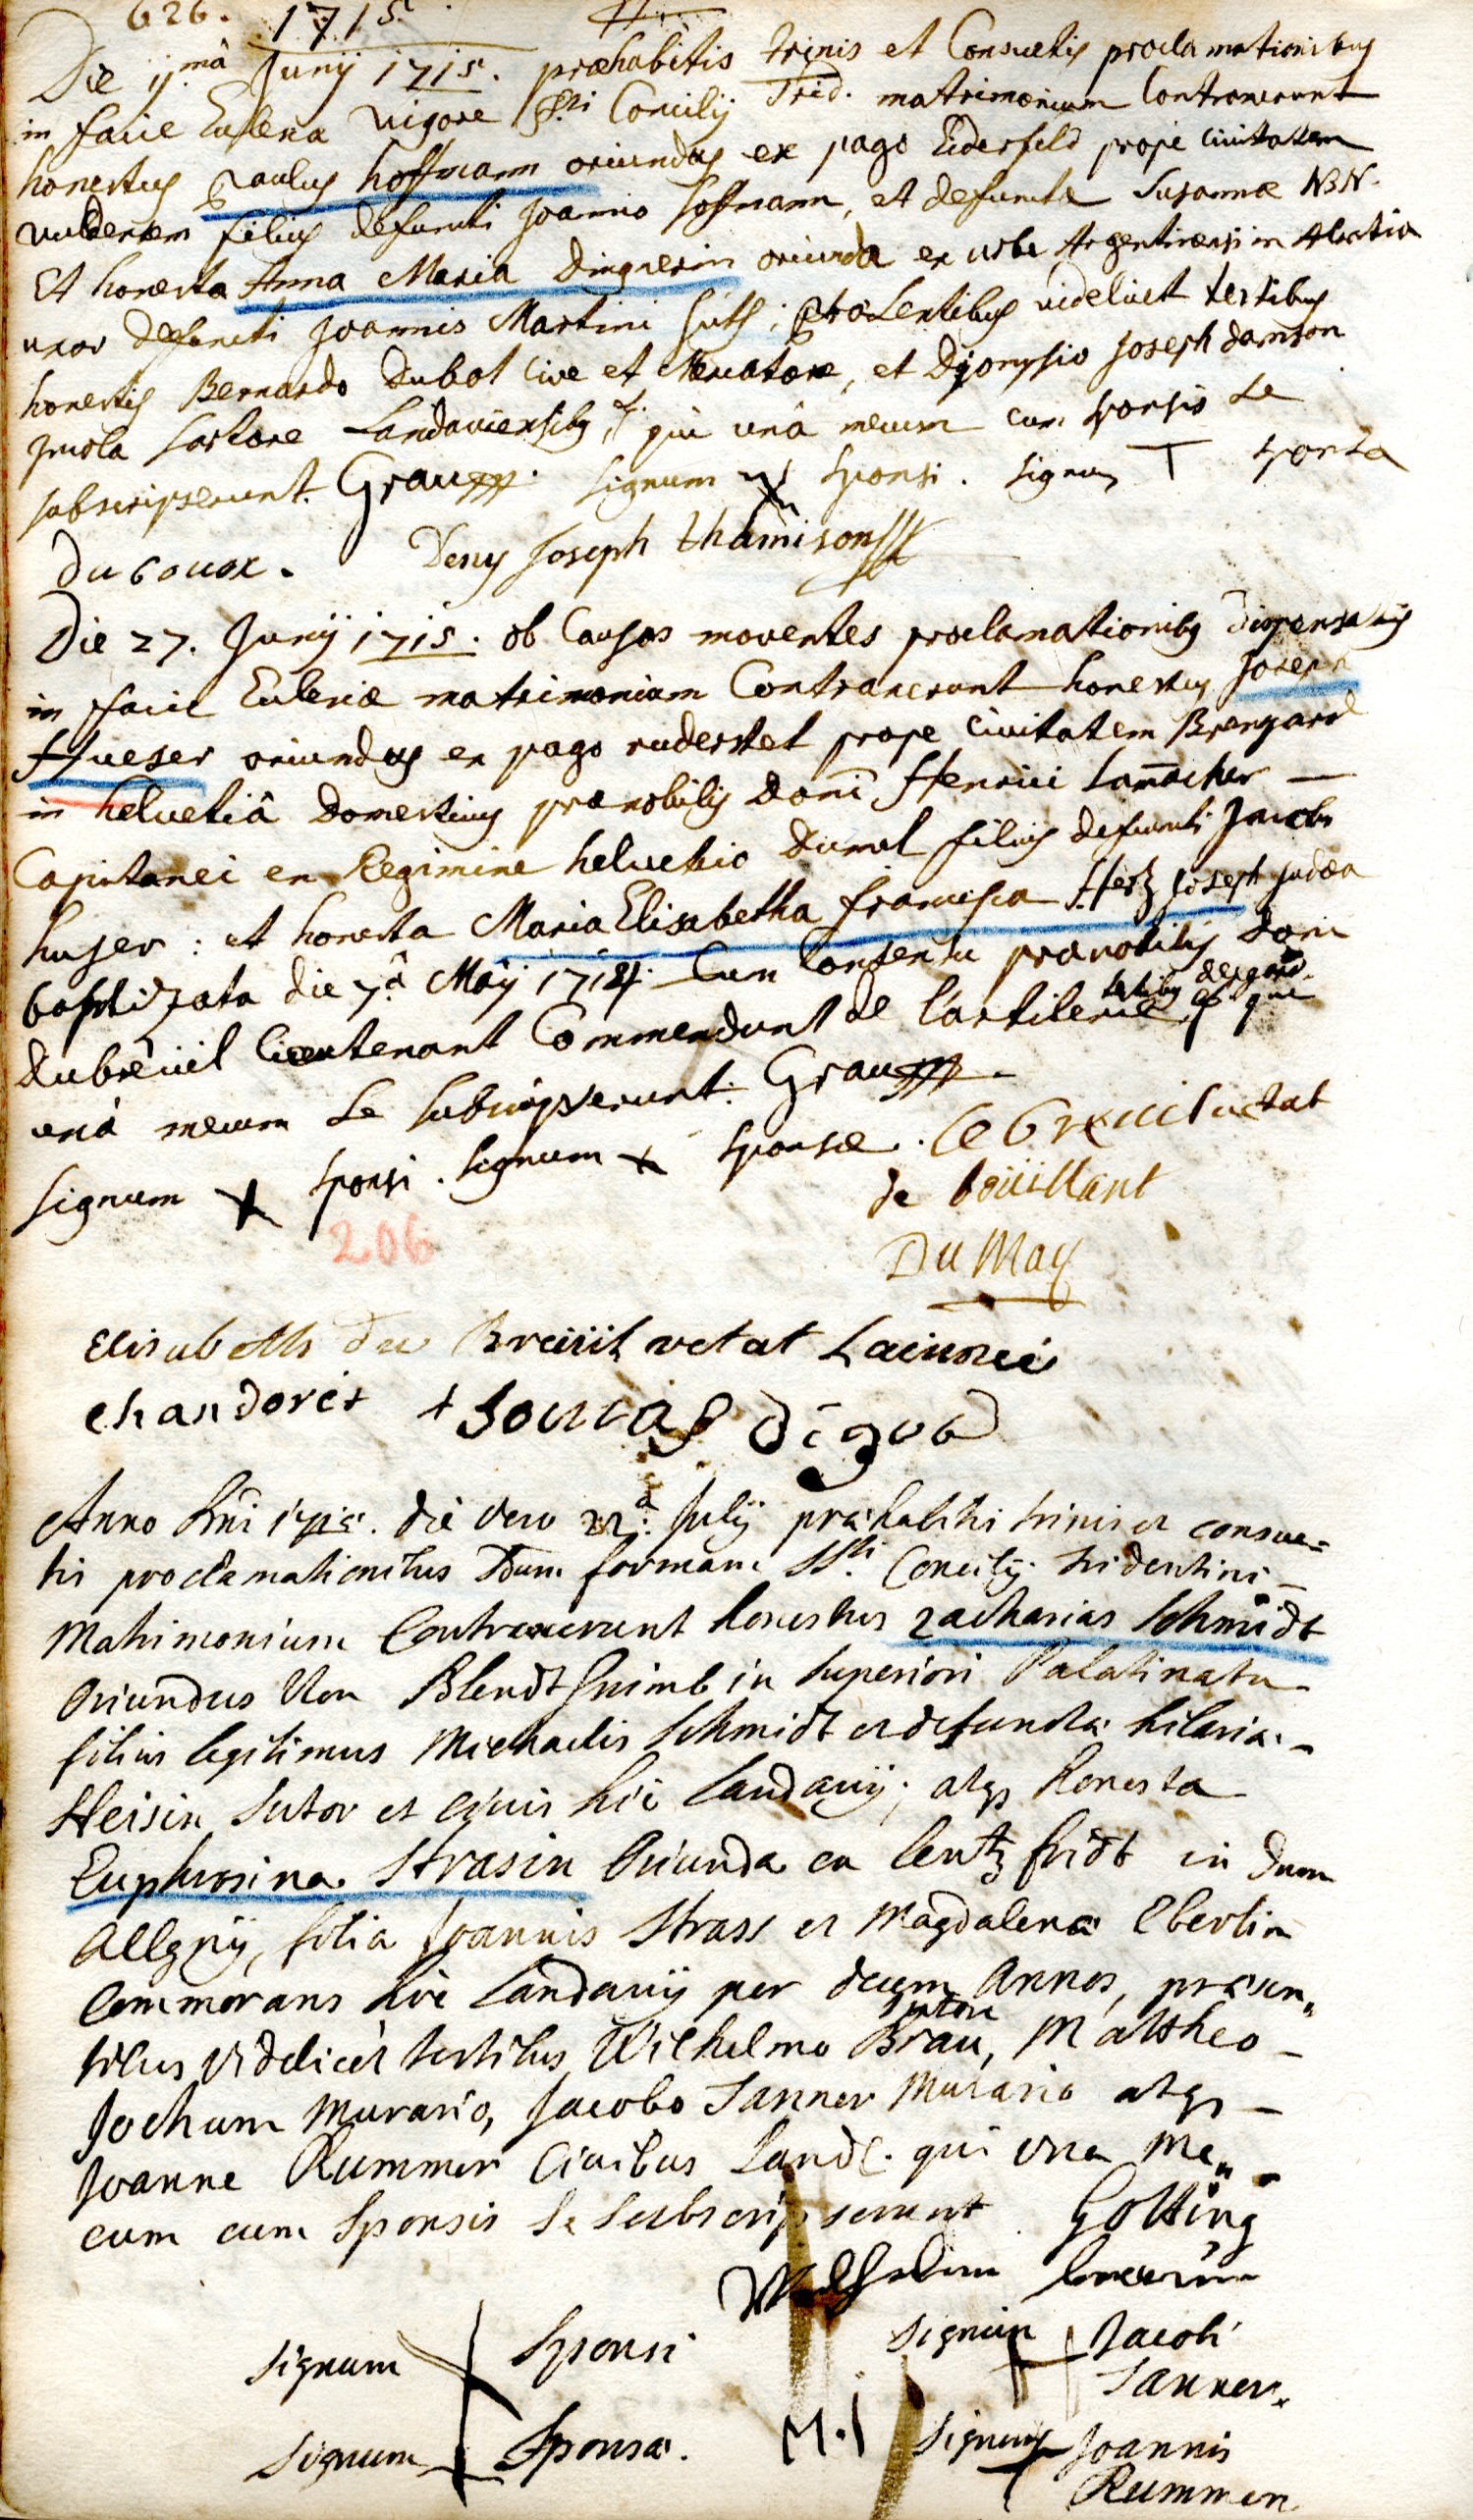 626. 1715.
Die ij.mâ Junij 1715. præhabitis trinis et Consuetis proclamationibus
in facie Eclesia vigore S.sti Concilij Trid. matrimonium Contraxerunt
honestus Paulus hoffmann oriundus ex pago Eiderfeld prope civitatem
vuldensem filius defuncti Joannis hoffmann, et defuncta Susannæ N.N.
Et honesta Anna Maria oriunda ex urbe Argentinensi in Alsatia
uxor defuncti Joannis Martini ; Præsentibus videlicet testibus
honestis Bernardo Dubot Cive et Mercatore, et Dyonysio Joseph damson
Incola Sartore Landaviensibus, qui unà mecum cum sponsis se
subscripserunt. Grau. Signum sponsi. Signum T sponsa
Deny Joseph thamison
Die 27. Junij 1715. ob Causas moventes proclamationibus Dispensatis
in facie Eclesiæ matrimonium Contraxerunt honestus Joseph
Hueser oriundus ex pago ruderstet prope Civitatem Bremgard
in helvetiâ Domesticus prænobilis Domi Henrici
Capitanei ex Regimine helvetico filius defuncti Jacobi
huser : et honesta Maria Elisabetha francisca Hertz Joseph judæa
baptizata die 7.â Maij 1714. Cum Consensu prænobilis Domi
dubreüil lieutenant Commendant de l'artilerie, testibus qui
unà mecum se subscripserunt. Grau.
Signum x sponsi. Signum x sponsæ.
de boüillant
Du May
206
Elisabeth du Breüil
chandoret
Anno Dni 1715. die vero 22.a Julij præhabitis trinis et consue=
tis proclamationibus Dum formam SSti. Concilij tridentini
Matrimonium Contraxerunt honestus zacharias Schmidt
Oriundus Von in superiori Palatinatu
filius legitimus Michaelis Schmidt et defunctæ hilariæ
Heisin Sutor et Civis hic Landavij, atqs honesta
Euphrosina Strasin Oriunda ex in Dum
Allgoij, filia Joannis Strass et Magdalenæ Eberlin
Commorans hic Landavij per decem Annos, præsen„
tibus Videlicet testibus Wilhelmo Brau, Sutore Mattheo
Jochum Murario, Jacobo Tanner Murario atqs
Joanne Rummer Civibus Land. qui una me„
cum cum Sponsis Se Subscripserunt Gotting
Signum Sponsi Signum Jacobi
Tanner.
Signum Sponsæ. M.J Signum Joannis
Rummer